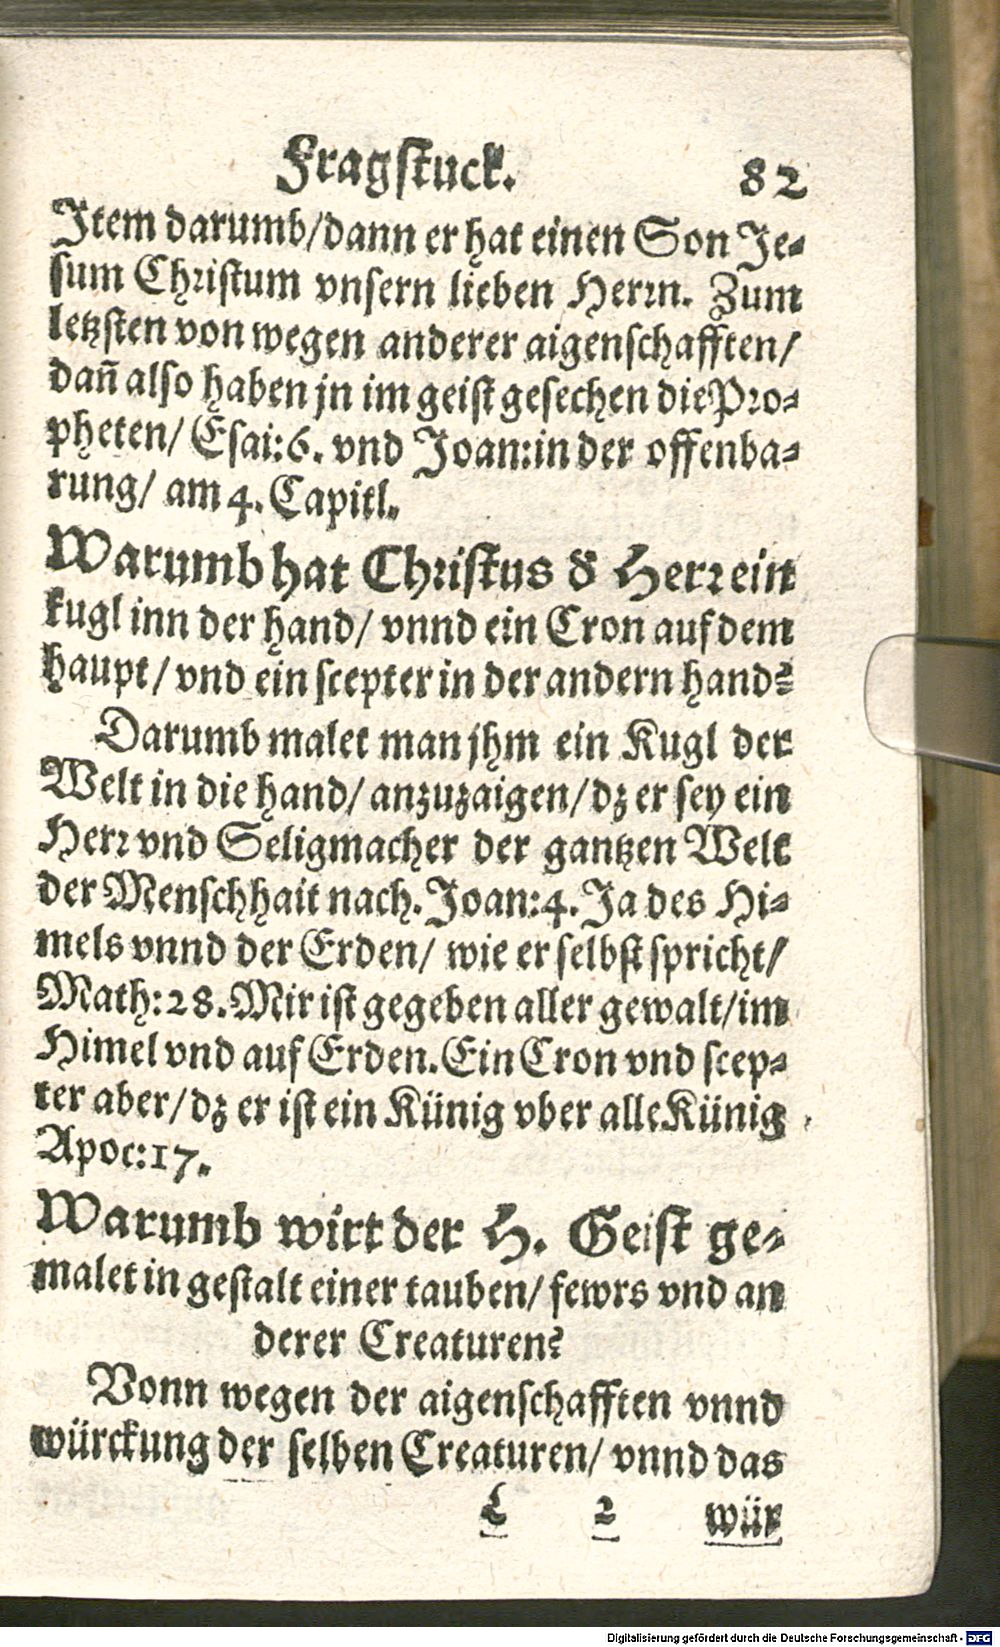 Fragstuck. 82
Item darumb/dann er hat einen Son Je-
sum Christum vnsern lieben Herrn. Zum
letzsten von wegen anderer aigenschafften/
dañ also haben jn im geist gesechen die Pro-
pheten/ Esai:6. vnd Joan:in der offenba-
rung/ am 4. Capitl.
Warumb hat Christus d̕ Herr ein
kugl inn der hand/ vnnd ein Cron auf dem
haupt/ vnd ein scepter in der andern hand?
Darumb malet man jhm ein Kugl der
Welt in die hand/ anzuzaigen/ dz er sey ein
Herr vnd Seligmacher der gantzen Welt
der Menschhait nach. Joan:4. Ja des Hi-
mels vnnd der Erden/ wie er selbst spricht/
Math:28. Mir ist gegeben aller gewalt/im
Himel vnd auf Erden. Ein Cron vnd scep-
ter aber/ dz er ist ein Künig vber alle Künig
Apoc:17.
Warumb wirt der H. Geist ge-
malet in gestalt einer tauben/ fewrs vnd an
derer Creaturen?
Vonn wegen der aigenschafften vnnd
würckung der selben Creaturen/ vnnd das
L 2 wür
Digitalisierung gefördert durch die Deutsche Forschungsgemeinschaft - DFG